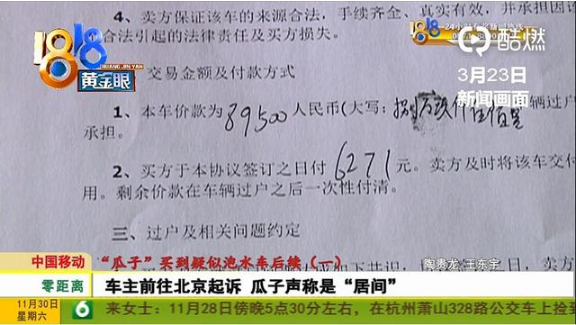 4、卖方保证该车的来源合法，手续齐全，真实有效，并承担因
合法引起的法律责任及买方损失。
1818
HUANG JIN YAN
黄金眼
酷燃
3月23日
新闻画面
交易金额及付款方式
1、本车价款为 89500 人民币（大写：捌万玖仟伍佰
辆过户
承担。
2、买方于本协议签订之日付 6271 元。卖方及时将该车交付
用。剩余价款在车辆过户之后一次性付清。
三、过户及相关问题约定
中国移动
“瓜子”买到疑似泡水车后续（一）
陶贵龙 王东宇
零距离
车主前往北京起诉 瓜子声称是“居间”
11月30日
星期六
6
来女士：11月28日傍晚5点30分左右，在杭州萧山328路公交车上捡到